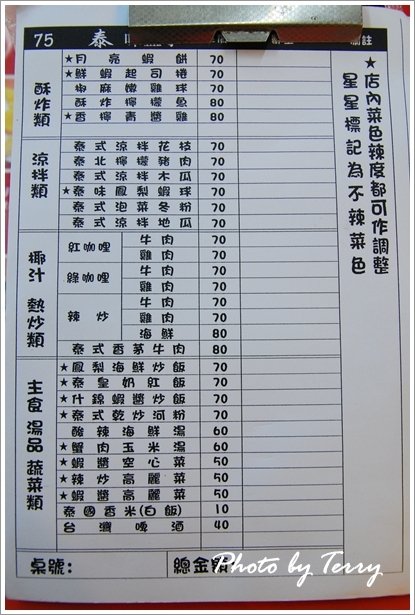 75 泰
★月亮蝦餅 70
★鮮蝦起司捲 70
椒麻嫩雞球 70
酥炸檸檬魚 80
★香檸青醬雞 80
酥炸類
泰式涼拌花枝 70
泰北檸檬豬肉 70
泰式涼拌木瓜 70
★泰味鳳梨蝦球 70
泰式泡菜冬粉 70
泰式涼拌地瓜 70
涼拌類
紅咖哩 牛肉 70
雞肉 70
綠咖哩 牛肉 70
雞肉 70
辣炒 牛肉 70
雞肉 70
海鮮 80
泰式香茅牛肉 80
椰汁 熱炒類
★鳳梨海鮮炒飯 70
★泰皇奶紅飯 70
★什錦蝦醬炒飯 70
★泰式乾炒河粉 70
酸辣海鮮湯 60
★蟹肉玉米湯 60
★蝦醬空心菜 50
★辣炒高麗菜 50
★蝦醬高麗菜 50
泰國香米(白飯) 10
台灣啤酒 40
主食 湯品 蔬菜類
★店內菜色辣度都可作調整
星星標記為不辣菜色
桌號:
總金額:
Photo by Terry